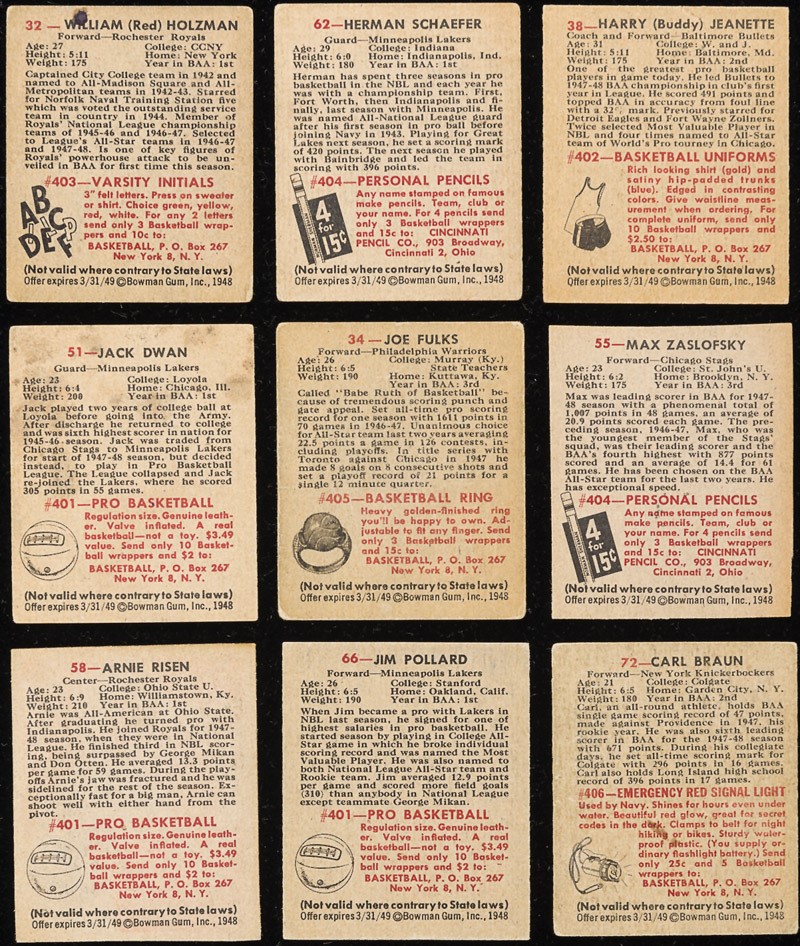 32—WILLIAM (Red) HOLZMAN
Forward—Rochester Royals
Age: 27 College: CCNY
Height: 5:11 Home: New York
Weight: 175 Year in BAA: 1st
Captained City College team in 1942 and
named to All-Madison Square and All-
Metropolitan teams in 1942-43. Starred
for Norfolk Naval Training Station five
which was voted the outstanding service
team in country in 1944. Member of
Royals' National League championship
teams of 1945-46 and 1946-47. Selected
to League's All-Star teams in 1946-47
and 1947-48. Is one of key figures of
Royals' powerhouse attack to be un-
veiled in BAA for first time this season.
#403—VARSITY INITIALS
3" felt letters. Press on sweater
or shirt. Choice green, yellow,
red, white. For any 2 letters
send only 3 Basketball wrap-
pers and 10c to:
BASKETBALL, P. O. Box 267
New York 8, N. Y.
(Not valid where contrary to State laws)
Offer expires 3/31/49 ©Bowman Gum, Inc., 1948
62—HERMAN SCHAEFER
Guard—Minneapolis Lakers
Age: 29 College: Indiana
Height: 6:0 Home: Indianapolis, Ind.
Weight: 180 Year in BAA: 1st
Herman has spent three seasons in pro
basketball in the NBL and each year he
was with a championship team. First,
Fort Worth, then Indianapolis and fi-
nally, last season with Minneapolis. He
was named All-National League guard
after his first season in pro ball before
joining Navy in 1943. Playing for Great
Lakes next season, he set a scoring mark
of 420 points. The next season he played
with Bainbridge and led the team in
scoring with 396 points.
#404—PERSONAL PENCILS
Any name stamped on famous
make pencils. Team, club or
your name. For 4 pencils send
only 3 Basketball wrappers
and 15c to: CINCINNATI
PENCIL CO., 903 Broadway,
Cincinnati 2, Ohio
4 for 15¢
(Not valid where contrary to State laws)
Offer expires 3/31/49 ©Bowman Gum, Inc., 1948
38—HARRY (Buddy) JEANETTE
Coach and Forward—Baltimore Bullets
Age: 31 College: W. and J.
Height: 5:11 Home: Baltimore, Md.
Weight: 175 Year in BAA: 2nd
One of the greatest pro basketball
players in game today. He led Bullets to
1947-48 BAA championship in club's first
year in League. He scored 491 points and
topped BAA in accuracy from foul line
with a 32 mark. Previously starred for
Detroit Eagles and Fort Wayne Zollners.
Twice selected Most Valuable Player in
NBL and four times named to All-Star
team of World's Pro tourney in Chicago.
#402—BASKETBALL UNIFORMS
Rich looking shirt (gold) and
satiny hip-padded trunks
(blue). Edged in contrasting
colors. Give waistline meas-
urement when ordering. For
complete uniform, send only
10 Basketball wrappers and
$2.50 to:
BASKETBALL, P. O. Box 267
New York 8, N. Y.
(Not valid where contrary to State laws)
Offer expires 3/31/49 ©Bowman Gum, Inc., 1948
51—JACK DWAN
Guard—Minneapolis Lakers
Age: 23 College: Loyola
Height: 6:4 Home: Chicago, Ill.
Weight: 200 Year in BAA: 1st
Jack played two years of college ball at
Loyola before going into the Army.
After discharge he returned to college
and was sixth highest scorer in nation for
1945-46 season. Jack was traded from
Chicago Stags to Minneapolis Lakers
for start of 1947-48 season, but decided
instead, to play in Pro Basketball
League. The League collapsed and Jack
re-joined the Lakers, where he scored
305 points in 55 games.
#401—PRO BASKETBALL
Regulation size. Genuine leath-
er. Valve inflated. A real
basketball—not a toy. $3.49
value. Send only 10 Basket-
ball wrappers and $2 to:
BASKETBALL, P. O. Box 267
New York 8, N. Y.
(Not valid where contrary to State laws)
Offer expires 3/31/49 ©Bowman Gum, Inc., 1948
34—JOE FULKS
Forward—Philadelphia Warriors
Age: 26 College: Murray (Ky.)
Height: 6:5 State Teachers
Weight: 190 Home: Kuttawa, Ky.
Year in BAA: 3rd
Called "Babe Ruth of Basketball" be-
cause of tremendous scoring punch and
gate appeal. Set all-time pro scoring
record for one season with 1611 points in
70 games in 1946-47. Unanimous choice
for All-Star team last two years averaging
22.5 points a game in 126 contests, in-
cluding playoffs. In title series with
Toronto against Chicago in 1947 he
made 8 goals on 8 consecutive shots and
set a playoff record of 21 points for a
single 12 minute quarter.
#405—BASKETBALL RING
Heavy golden-finished ring
you'll be happy to own. Ad-
justable to fit any finger. Send
only 3 Basketball wrappers
and 15c to:
BASKETBALL, P. O. Box 267
New York 8, N. Y.
(Not valid where contrary to State laws)
Offer expires 3/31/49 ©Bowman Gum, Inc., 1948
55—MAX ZASLOFSKY
Forward—Chicago Stags
Age: 23 College: St. John's U.
Height: 6:2 Home: Brooklyn, N. Y.
Weight: 175 Year in BAA: 3rd
Max was leading scorer in BAA for 1947-
48 season with a phenomenal total of
1,007 points in 48 games, an average of
20.9 points scored each game. The pre-
ceding season, 1946-47, Max, who was
the youngest member of the Stags'
squad, was their leading scorer and the
BAA's fourth highest with 877 points
scored and an average of 14.4 for 61
games. He has been chosen on the BAA
All-Star team for the last two years. He
has exceptional speed.
#404—PERSONAL PENCILS
Any name stamped on famous
make pencils. Team, club or
your name. For 4 pencils send
only 3 Basketball wrappers
and 15c to: CINCINNATI
PENCIL CO., 903 Broadway,
Cincinnati 2, Ohio
4 for 15¢
(Not valid where contrary to State laws)
Offer expires 3/31/49 ©Bowman Gum, Inc., 1948
58—ARNIE RISEN
Center—Rochester Royals
Age: 23 College: Ohio State U.
Height: 6:9 Home: Williamstown, Ky.
Weight: 210 Year in BAA: 1st
Arnie was All-American at Ohio State.
After graduating he turned pro with
Indianapolis. He joined Royals for 1947-
48 season, when they were in National
League. He finished third in NBL scor-
ing, being surpassed by George Mikan
and Don Otten. He averaged 13.3 points
per game for 59 games. During the play-
offs Arnie's jaw was fractured and he was
sidelined for the rest of the season. Ex-
ceptionally fast for a big man, Arnie can
shoot well with either hand from the
pivot.
#401—PRO BASKETBALL
Regulation size. Genuine leath-
er. Valve inflated. A real
basketball—not a toy. $3.49
value. Send only 10 Basket-
ball wrappers and $2 to:
BASKETBALL, P. O. Box 267
New York 8, N. Y.
(Not valid where contrary to State laws)
Offer expires 3/31/49 ©Bowman Gum, Inc., 1948
66—JIM POLLARD
Forward—Minneapolis Lakers
Age: 26 College: Stanford
Height: 6:5 Home: Oakland, Calif.
Weight: 190 Year in BAA: 1st
When Jim became a pro with Lakers in
NBL last season, he signed for one of
highest salaries in pro basketball. He
started season by playing in College All-
Star game in which he broke individual
scoring record and was named the Most
Valuable Player. He was also named to
both National League All-Star team and
Rookie team. Jim averaged 12.9 points
per game and scored more field goals
(310) than anybody in National League
except teammate George Mikan.
#401—PRO BASKETBALL
Regulation size. Genuine leath-
er. Valve inflated. A real
basketball—not a toy. $3.49
value. Send only 10 Basket-
ball wrappers and $2 to:
BASKETBALL, P. O. Box 267
New York 8, N. Y.
(Not valid where contrary to State laws)
Offer expires 3/31/49 ©Bowman Gum, Inc., 1948
72—CARL BRAUN
Forward—New York Knickerbockers
Age: 21 College: Colgate
Height: 6:5 Home: Garden City, N. Y.
Weight: 180 Year in BAA: 2nd
Carl, an all-round athlete, holds BAA
single game scoring record of 47 points,
made against Providence in 1947, his
rookie year. He was also sixth leading
scorer in BAA for the 1947-48 season
with 671 points. During his collegiate
days, he set all-time scoring mark for
Colgate with 296 points in 16 games.
Carl also holds Long Island high school
record of 396 points in 17 games.
#406—EMERGENCY RED SIGNAL LIGHT
Used by Navy. Shines for hours even under
water. Beautiful red glow, great for secret
codes in the dark. Clamps to belt for night
hiking or bikes. Sturdy water-
proof plastic. (You supply or-
dinary flashlight battery.) Send
only 25c and 5 Basketball
wrappers to:
BASKETBALL, P. O. Box 267
New York 8, N. Y.
(Not valid where contrary to State laws)
Offer expires 3/31/49 ©Bowman Gum, Inc., 1948